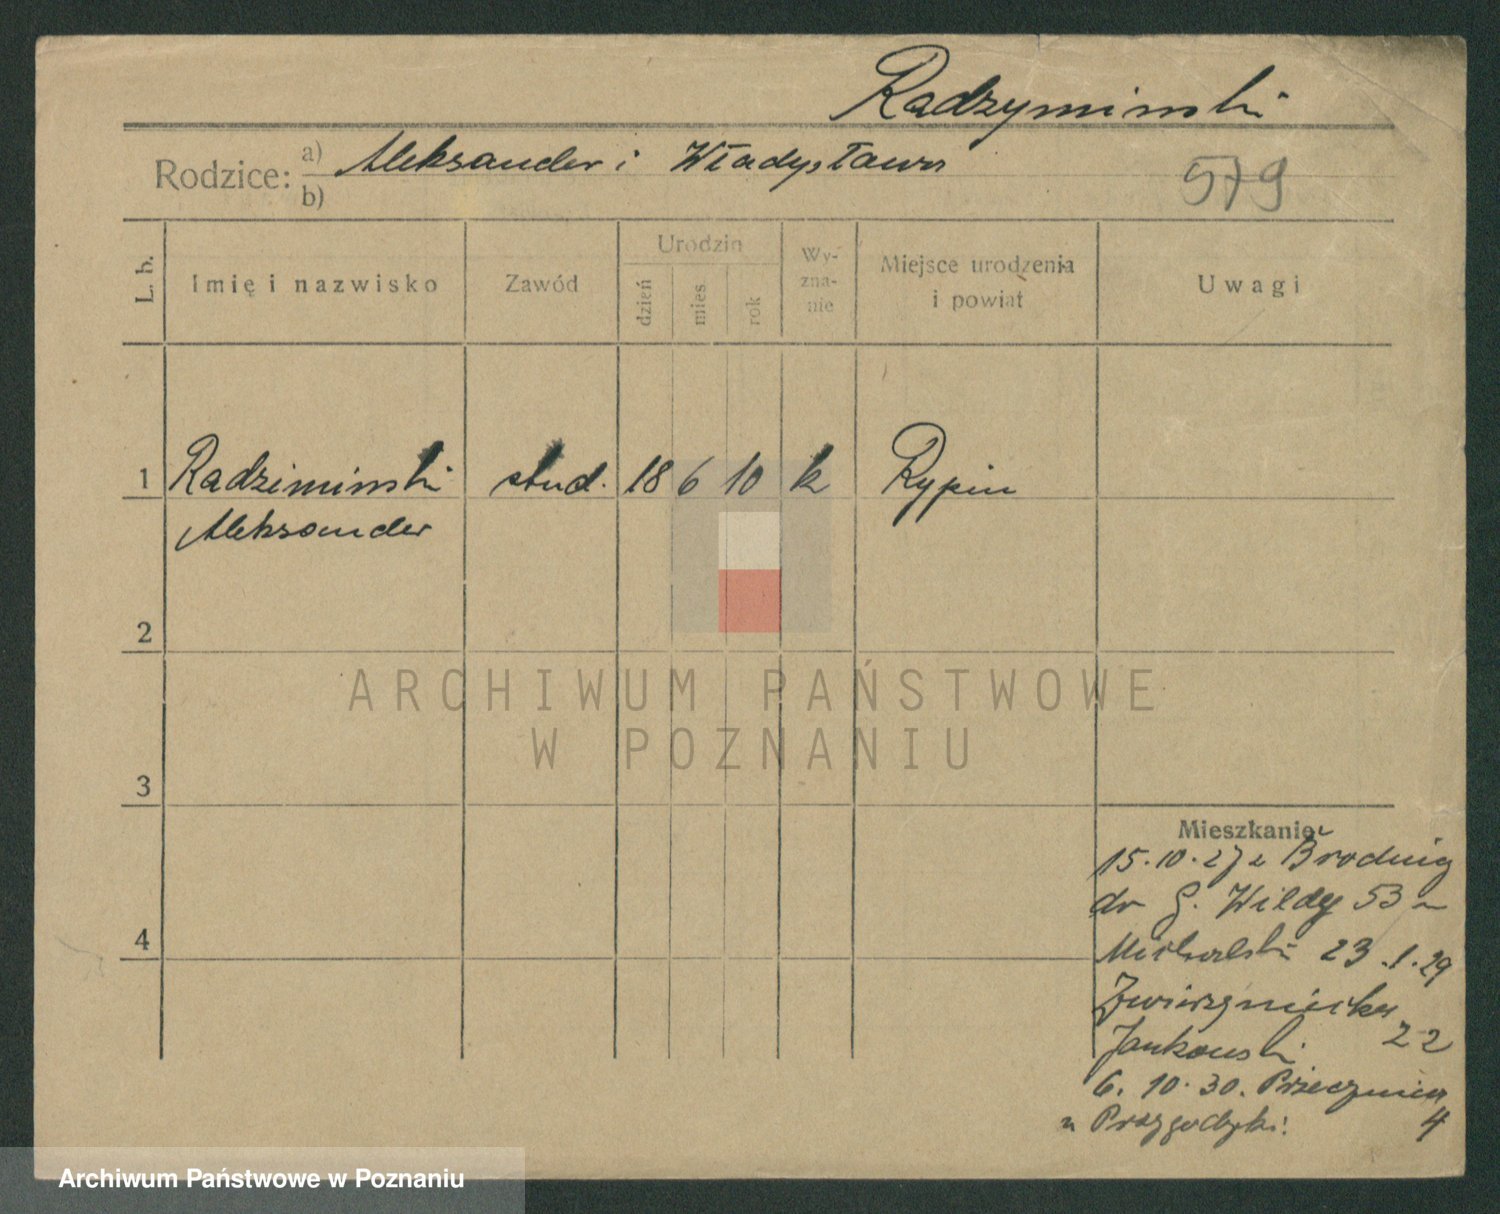 Radzyminski
Rodzice: a) Aleksander i Władysława
b)
579
L. b.
Imię i nazwisko
Zawód
Urodzin
dzień
mies.
rok
Wy-
zna-
nie
Miejsce urodzenia
i powiat
Uwagi
1 Radziminski stud. 18 6 10 k Rypin
Aleksander
2
ARCHIWUM PAŃSTWOWE
W POZNANIU
3
Mieszkanie
15.10.27 z Brodnicy
dr G. Wildy 53 u
Michalski 23.1.29
Zwierzyniecka
22
Jankowski
6. 10. 30. Przecznica
4
u Przygodzki.
4
Archiwum Państwowe w Poznaniu